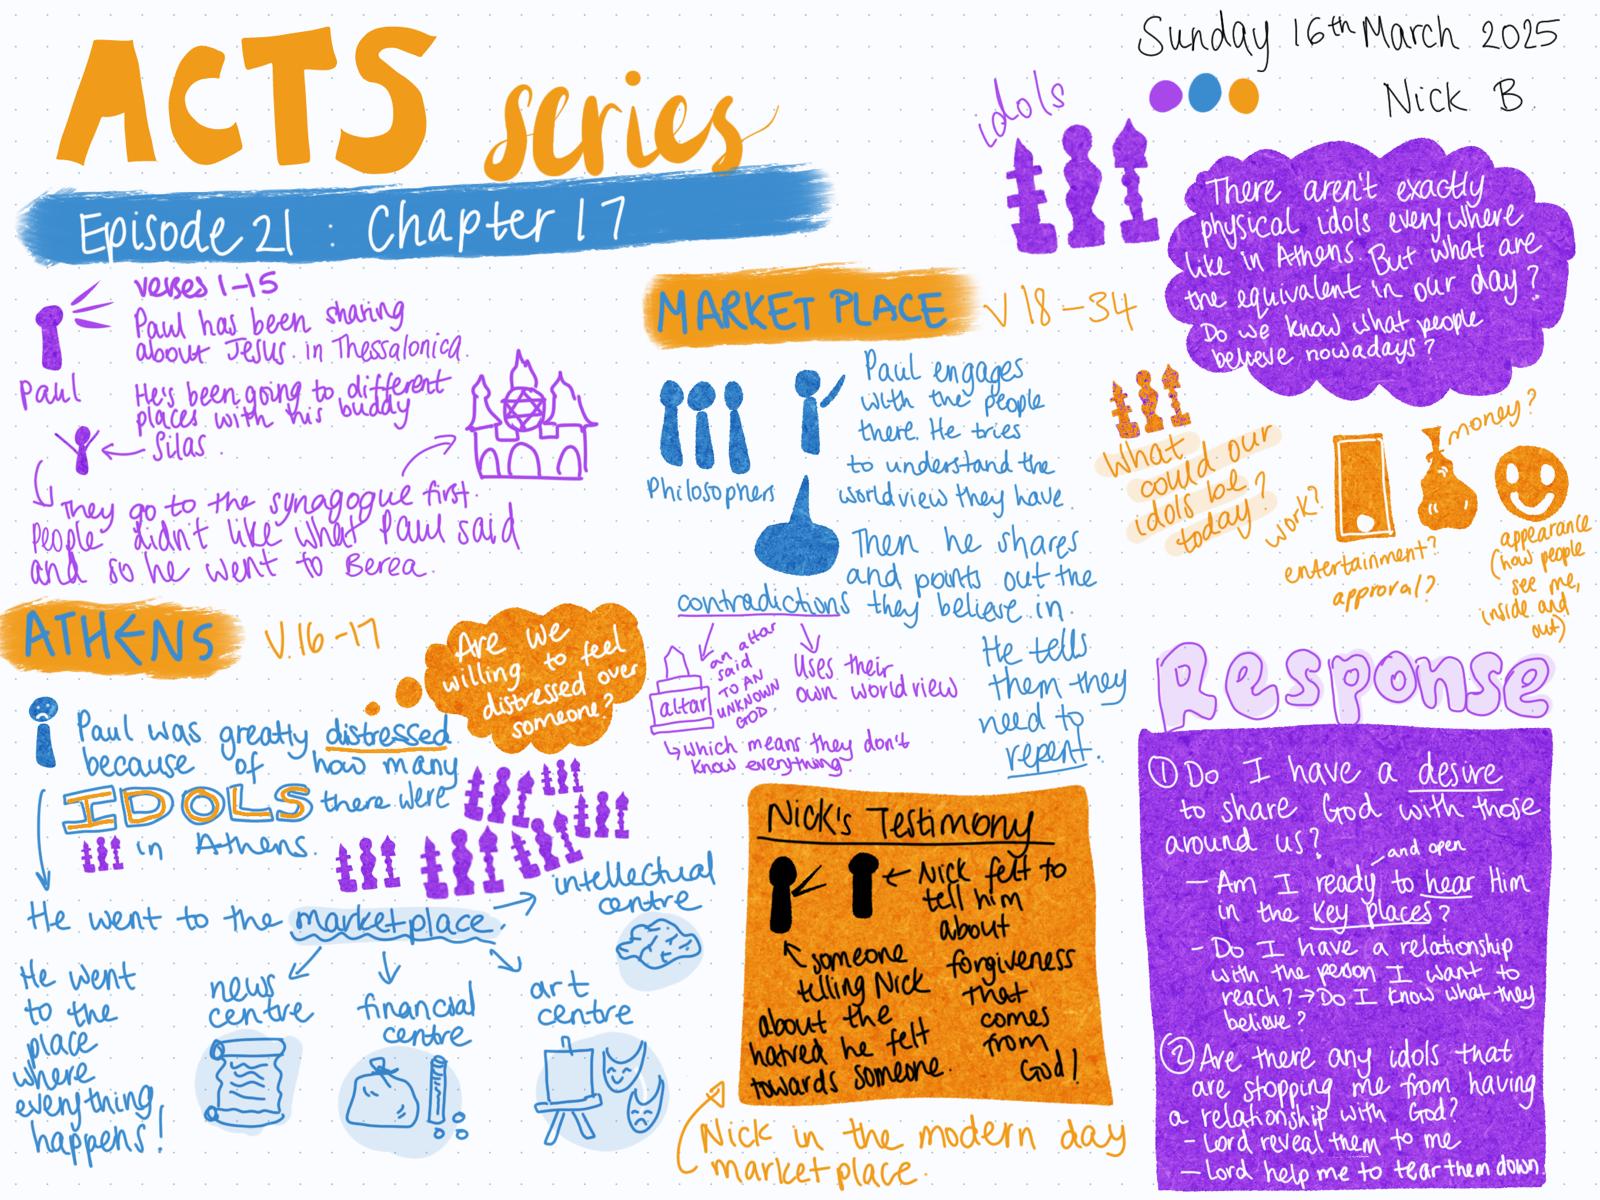 ACTS series
Sunday 16th March 2025
Nick B
Episode 21 : Chapter 17
verses 1-15
Paul has been sharing
about Jesus in Thessalonica.
Paul
He's been going to different
places with his buddy
Silas.
They go to the synagogue first.
People didn't like what Paul said
and so he went to Berea.
ATHENS V.16-17
Are we
willing to feel
distressed over
someone?
Paul was greatly distressed
because of how many
IDOLS there were
in Athens.
He went to the marketplace.
intellectual
centre
He went
to the
place
where
everything
happens!
news
centre
financial
centre
art
centre
MARKET PLACE V18-34
Philosophers
Paul engages
with the people
there. He tries
to understand the
worldview they have.
Then he shares
and points out the
contradictions they believe in.
altar
an altar
said
TO AN
UNKNOWN
GOD.
which means they don't
know everything.
Uses their
own worldview
He tells
them they
need to
repent.
Nick's Testimony
someone
telling Nick
about the
hatred he felt
towards someone.
Nick felt to
tell him
about
forgiveness
that
comes
from
God!
Nick in the modern day
marketplace.
idols
There aren't exactly
physical idols everywhere
like in Athens. But what are
the equivalent in our day?
Do we know what people
believe nowadays?
What
could our
idols be
today?
work?
entertainment?
approval?
money?
appearance
(how people
see me,
inside and
out)
Response
① Do I have a desire
to share God with those
around us?
and open
- Am I ready to hear Him
in the key places?
- Do I have a relationship
with the person I want to
reach? → Do I know what they
believe?
② Are there any idols that
are stopping me from having
a relationship with God?
- Lord reveal them to me
- Lord help me to tear them down.